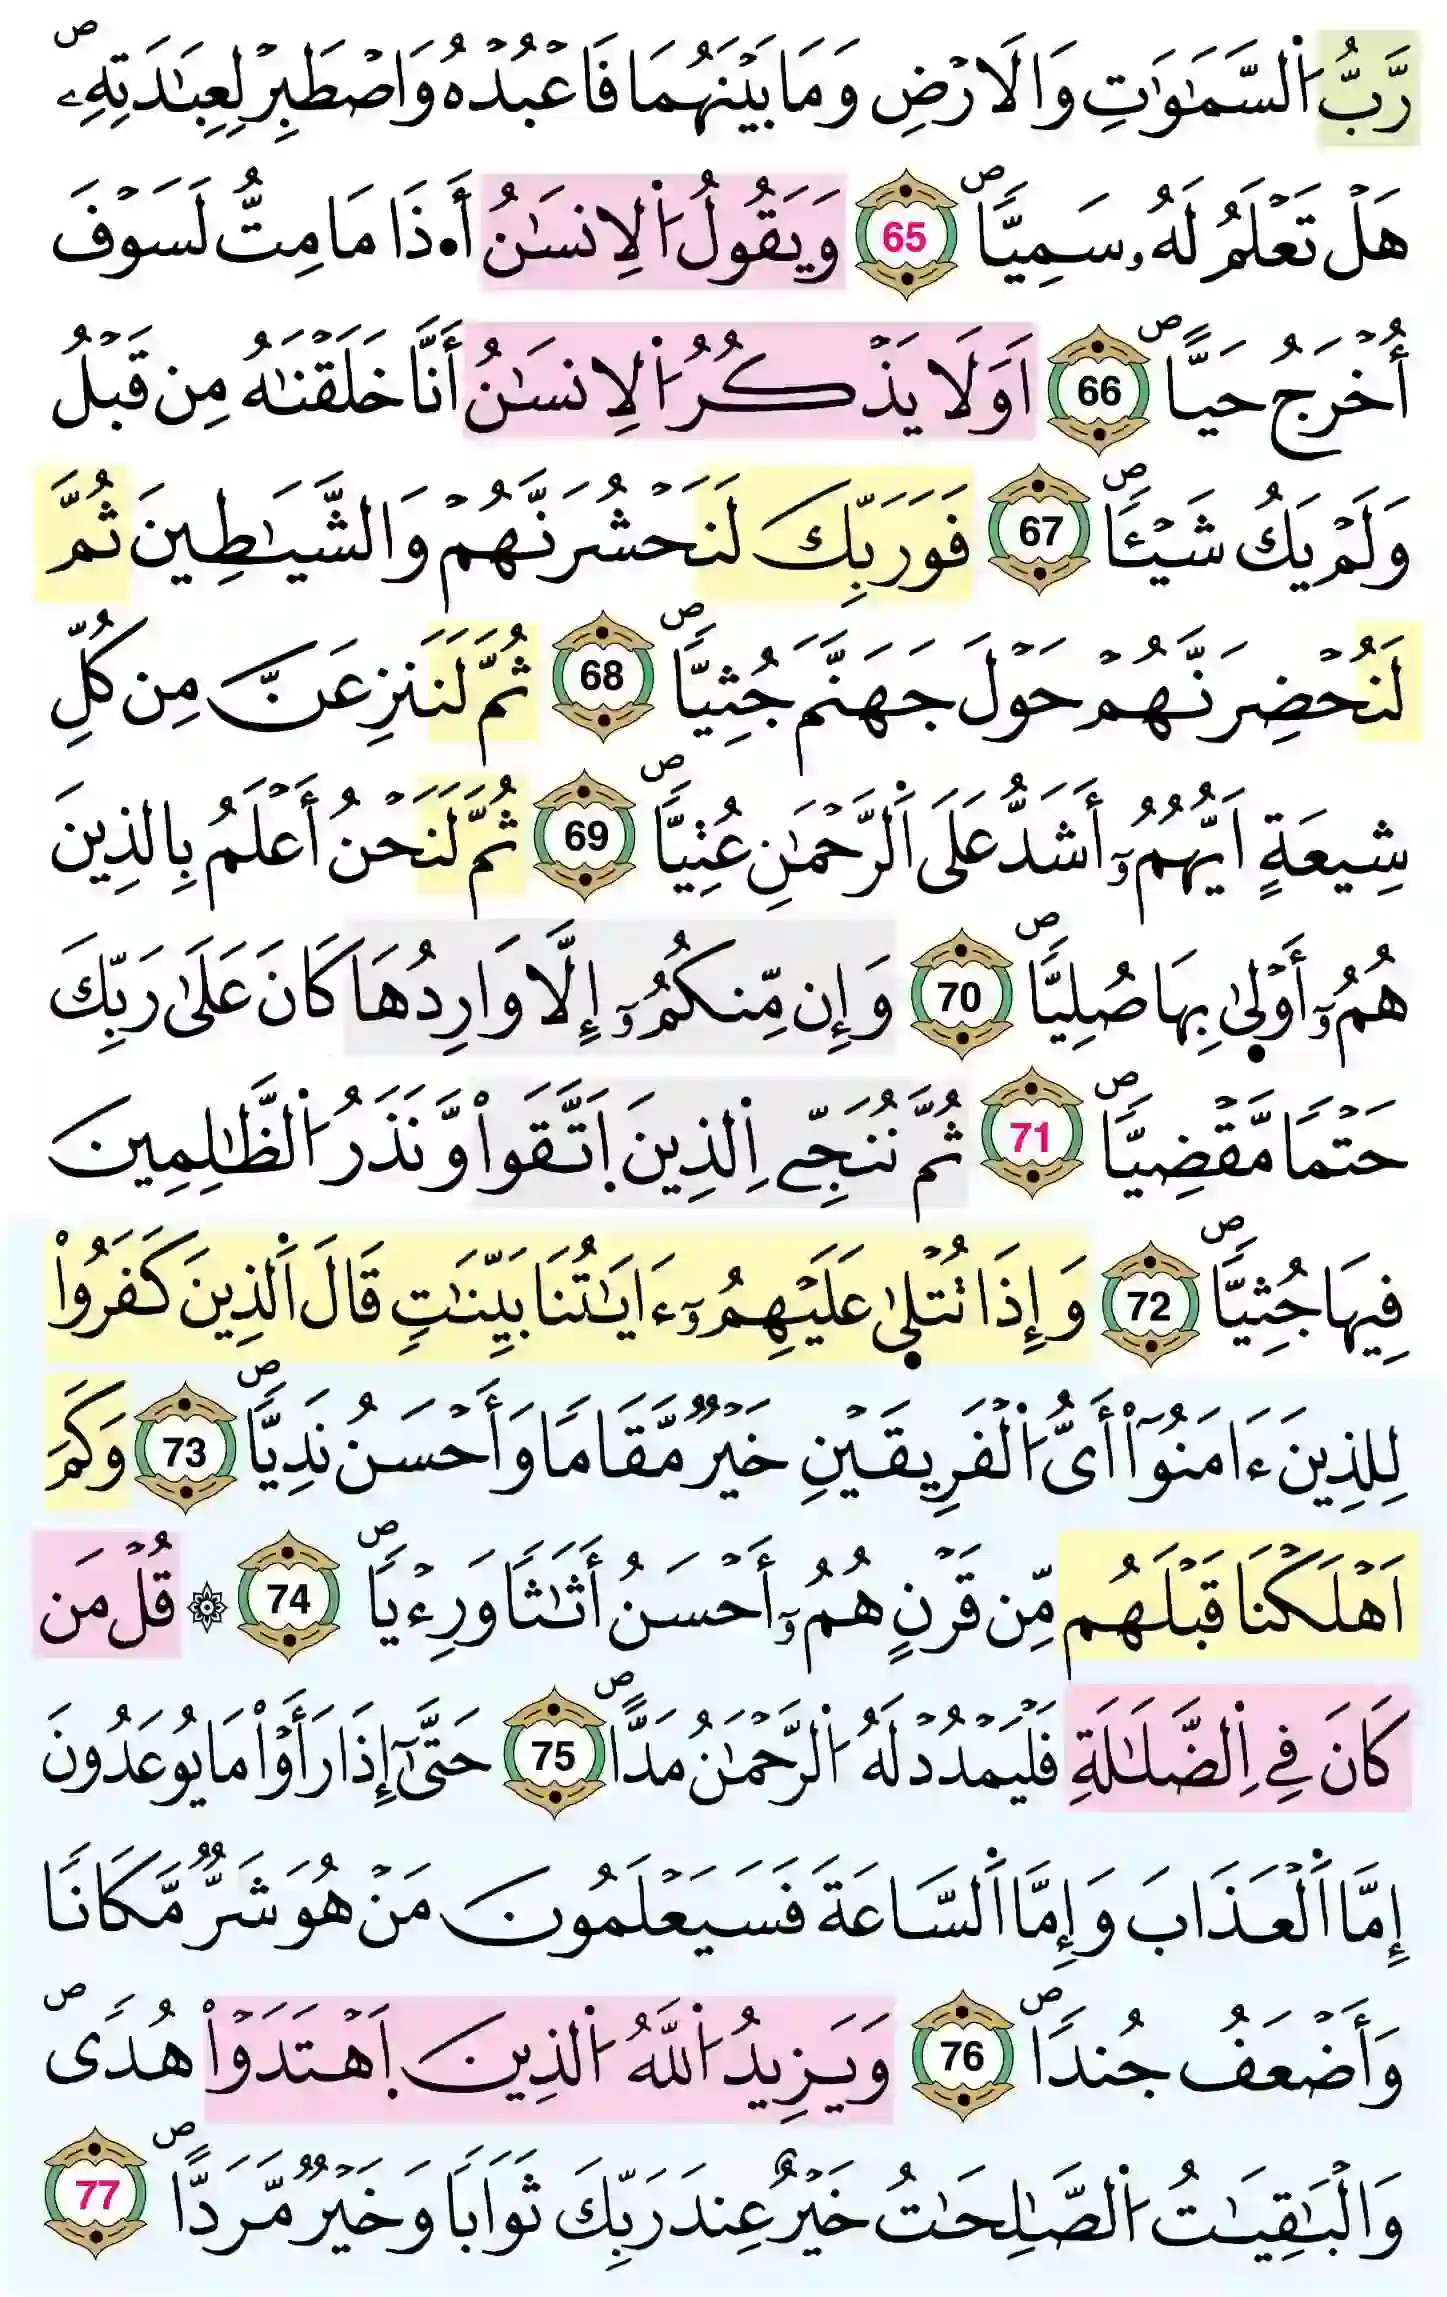 رَّبُّ اُ۬لسَّمَٰوَٰتِ وَالَارْضِ وَمَا بَيْنَهُمَا فَاعْبُدْهُ وَاصْطَبِرْ لِعِبَٰدَتِهِۦۖ
هَلْ تَعْلَمُ لَهُۥ سَمِيّٗاۖ 65 وَيَقُولُ اُ۬لِانسَٰنُ أَ.ذَا مَا مِتُّ لَسَوْفَ
أُخْرَجُ حَيّاًۖ 66 اَوَلَا يَذْكُرُ اُ۬لِانسَٰنُ أَنَّا خَلَقْنَٰهُ مِن قَبْلُ
وَلَمْ يَكُ شَيْـٔاٗۖ 67 فَوَرَبِّكَ لَنَحْشُرَنَّهُمْ وَالشَّيَٰطِينَ ثُمَّ
لَنُحْضِرَنَّهُمْ حَوْلَ جَهَنَّمَ جُثِيّٗاۖ 68 ثُمَّ لَنَنزِعَنَّ مِن كُلِّ
شِيعَةٍ اَيُّهُمُۥٓ أَشَدُّ عَلَى اَ۬لرَّحْمَٰنِ عُتِيّٗاۖ 69 ثُمَّ لَنَحْنُ أَعْلَمُ بِالذِينَ
هُمُۥٓ أَوْلَىٰ بِهَا صُلِيّٗاۖ 70 وَإِن مِّنكُمُۥٓ إِلَّا وَارِدُهَا كَانَ عَلَىٰ رَبِّكَ
حَتْماٗ مَّقْضِيّٗاۖ 71 ثُمَّ نُنَجِّے اِ۬لذِينَ اَ۪تَّقَواْ وَّنَذَرُ اُ۬لظَّٰلِمِينَ
فِيهَا جُثِيّٗاۖ 72 وَإِذَا تُتْلَىٰ عَلَيْهِمُۥٓ ءَايَٰتُنَا بَيِّنَٰتٖ قَالَ اَ۬لذِينَ كَفَرُواْ
لِلذِينَ ءَامَنُوٓاْ أَىُّ اُ۬لْفَرِيقَيْنِ خَيْرٞ مَّقَاماٗ وَأَحْسَنُ نَدِيّٗاۖ 73 وَكَمَ
اَهْلَكْنَا قَبْلَهُم مِّن قَرْنٍ هُمُۥٓ أَحْسَنُ أَثَٰثاٗ وَرِءْياٗۖ 74 ۞ قُلْ مَن
كَانَ فِي اِ۬لضَّلَٰلَةِ فَلْيَمْدُدْ لَهُ اُ۬لرَّحْمَٰنُ مَدّاًۖ 75 حَتَّىٰٓ إِذَا رَأَوْاْ مَا يُوعَدُونَ
إِمَّا اَ۬لْعَذَابَ وَإِمَّا اَ۬لسَّاعَةَ فَسَيَعْلَمُونَ مَنْ هُوَ شَرّٞ مَّكَاناٗ
وَأَضْعَفُ جُنداٗۖ 76 وَيَزِيدُ اُ۬للَّهُ اُ۬لذِينَ اَ۪هْتَدَوْاْ هُدىٗۖ
وَالْبَٰقِيَٰتُ اُ۬لصَّٰلِحَٰتُ خَيْرٌ عِندَ رَبِّكَ ثَوَاباٗ وَخَيْرٞ مَّرَدّاًۖ 77